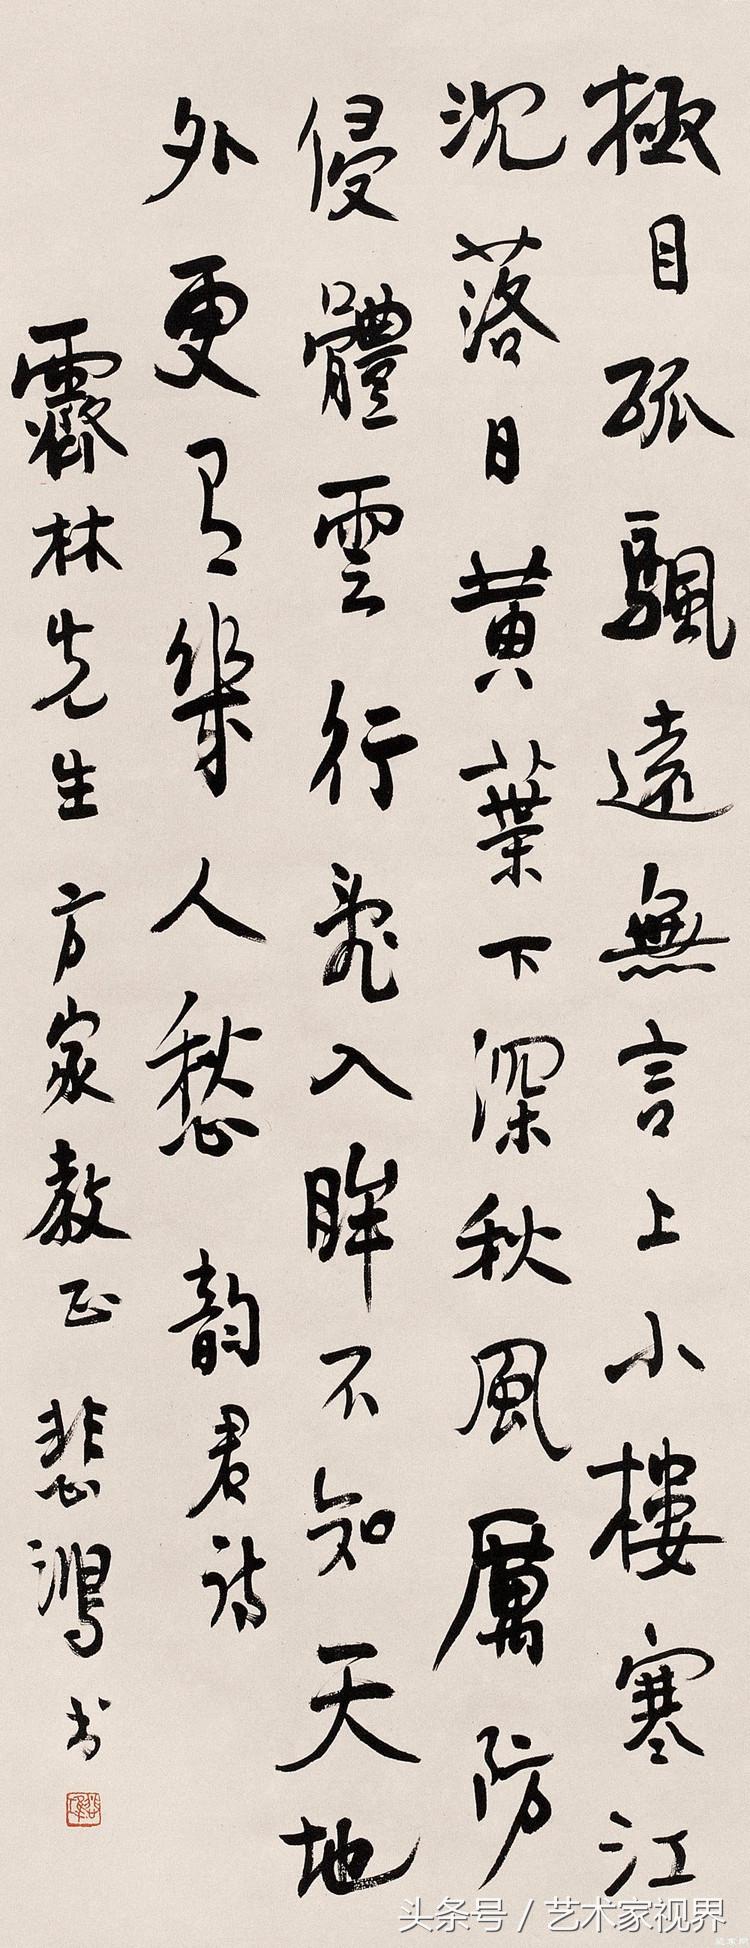 極目孤颿遠無言上小樓寒江
沉落日黄葉下深秋風厲防
侵體雲行飛入眸不知天地
外更有幾人愁 韵君詩
霽林先生方家教正 悲鴻书
头条号 / 艺术家视界